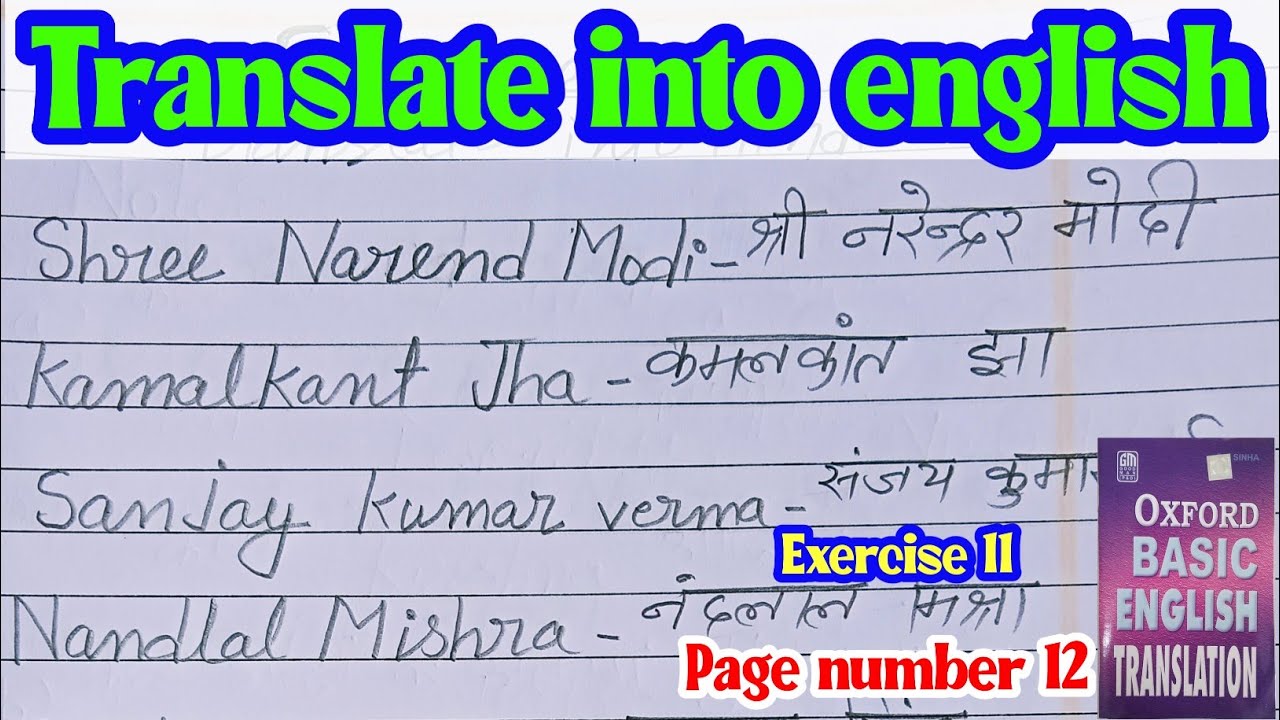 Translate into english
Shree Narend Modi - श्री नरेन्द्रर मोदी
Kamalkant Jha - कमलकांत झा
Sanjay Kumar verma - संजय कुमार
Exercise 11
Nandlal Mishra - नंदलाल मिश्रा
Page number 12
GM
SINHA
OXFORD
BASIC
ENGLISH
TRANSLATION